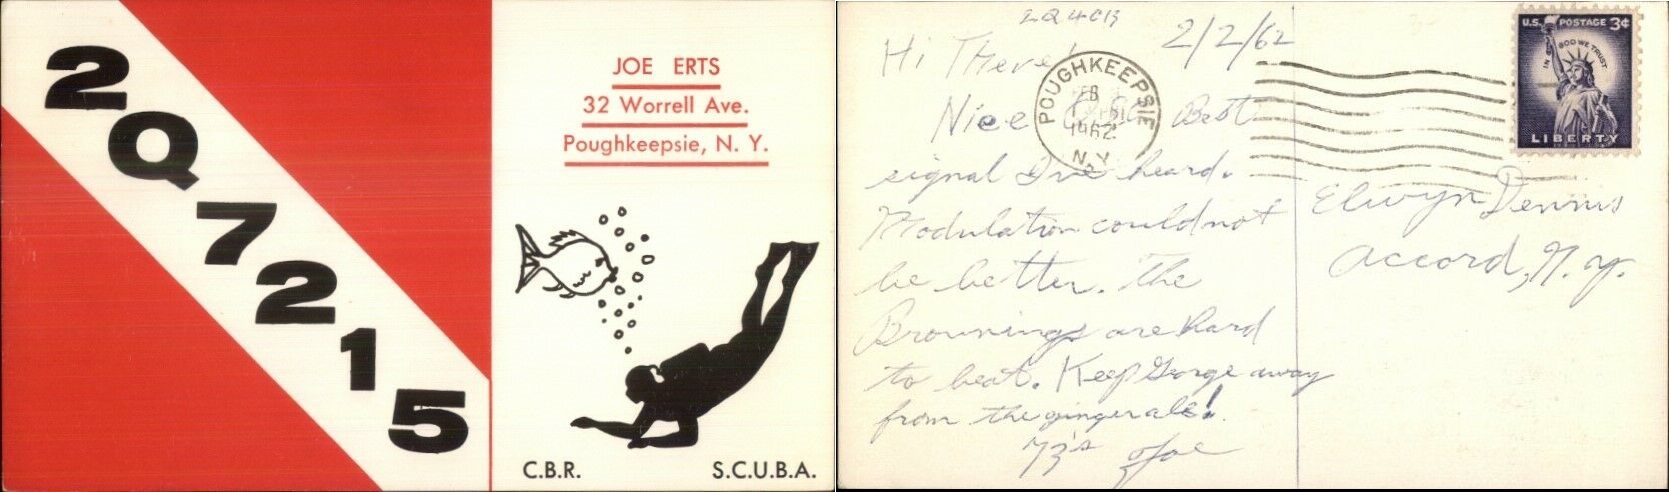 2Q7215
JOE ERTS
32 Worrell Ave.
Poughkeepsie, N. Y.
C.B.R.
S.C.U.B.A.
2Q4013
2/2/62
Hi There!
Nice Best
signal I've heard.
Modulation could not
be better. The
Brownings are hard
to beat. Keep George away
from the gingerale!
73's Joe
POUGHKEEPSIE
FEB
1962
N.Y.
U.S. POSTAGE 3¢
IN GOD WE TRUST
LIBERTY
Elwyn Dennis
Accord, N.Y.